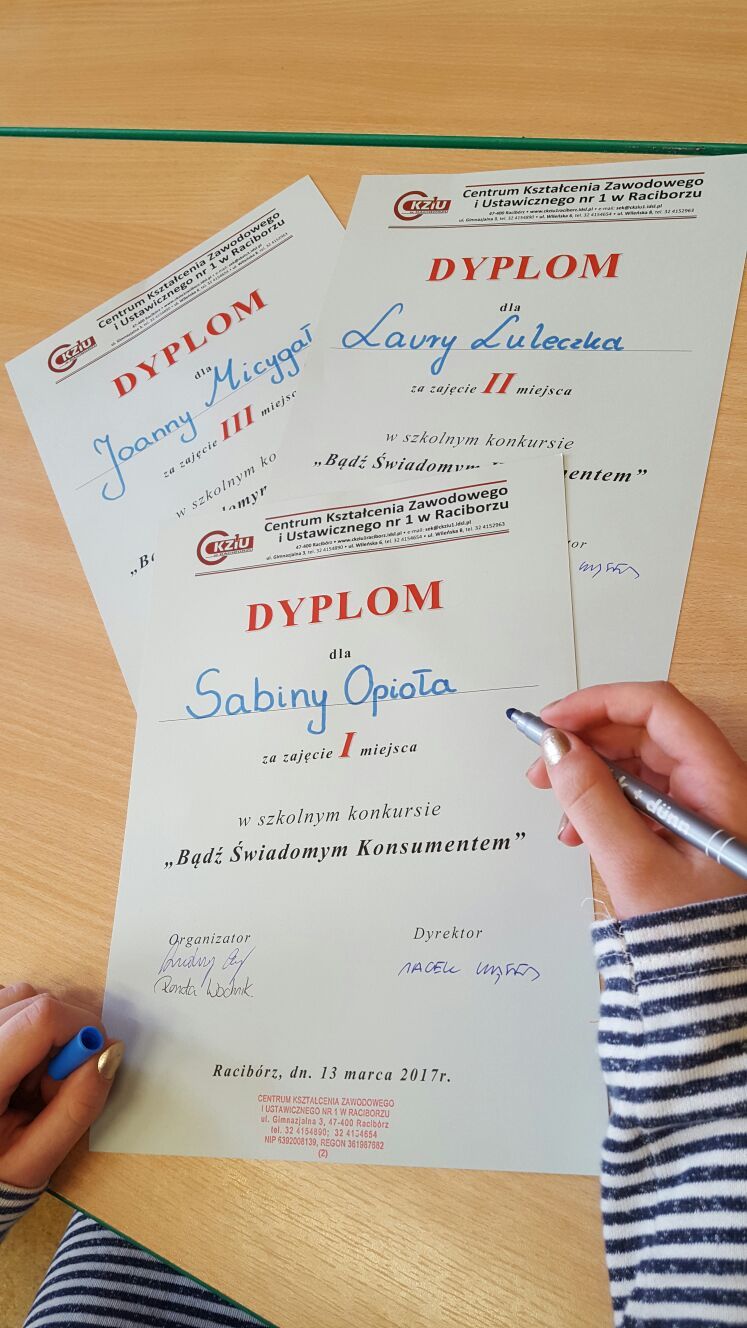 CKZIU
Centrum Kształcenia Zawodowego
i Ustawicznego nr 1 w Raciborzu
DYPLOM
dla
Joanny Micygał
za zajęcie III miejsc
w szkolnym ko
„B
CKZIU
Centrum Kształcenia Zawodowego
i Ustawicznego nr 1 w Raciborzu
47-400 Racibórz • www.ckziu1raciborz.idsl.pl • e-mail: sek@ckziu1.idsl.pl
ul. Gimnazjalna 3, tel. 32 4154890 • ul. Wileńska 6, tel. 32 4154654 • ul. Wileńska 8, tel. 32 4152963
DYPLOM
dla
Laury Luleczka
za zajęcie II miejsca
w szkolnym konkursie
„Bądź Świadomym entem”
tor
CKZIU
Centrum Kształcenia Zawodowego
i Ustawicznego nr 1 w Raciborzu
47-400 Racibórz • www.ckziu1raciborz.idsl.pl • e-mail: sek@ckziu1.idsl.pl
ul. Gimnazjalna 3, tel. 32 4154890 • ul. Wileńska 6, tel. 32 4154654 • ul. Wileńska 8, tel. 32 4152963
DYPLOM
dla
Sabiny Opioła
za zajęcie I miejsca
w szkolnym konkursie
„Bądź Świadomym Konsumentem”
Organizator Dyrektor
Renata
Racibórz, dn. 13 marca 2017r.
CENTRUM KSZTAŁCENIA ZAWODOWEGO
I USTAWICZNEGO NR 1 W RACIBORZU
ul. Gimnazjalna 3, 47-400 Racibórz
tel. 32 4154890; 32 4154654
NIP 6392008139, REGON 361987682
(2)
dünn